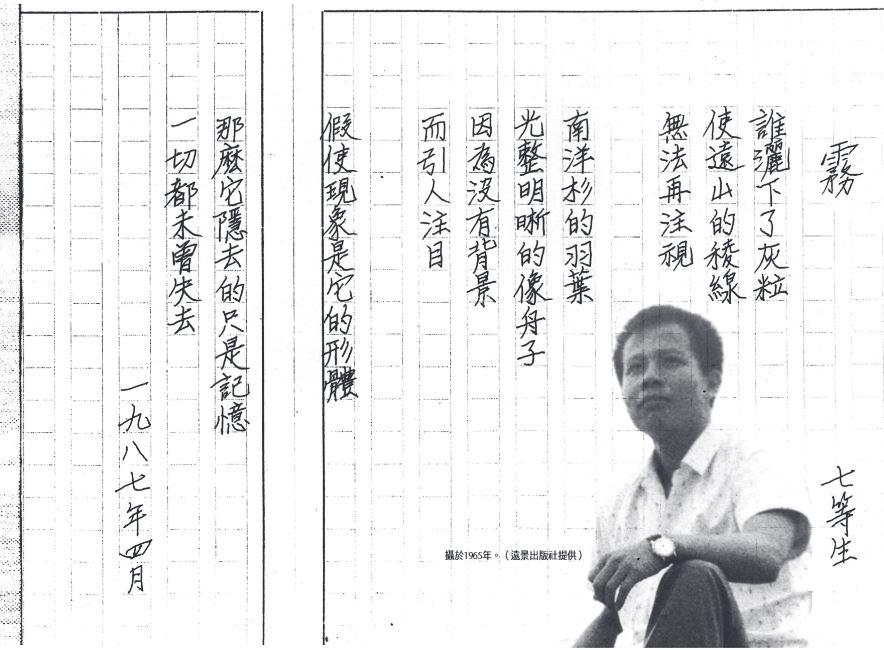 霧
七等生
誰灑下了灰粒
使遠山的稜線
無法再注視
南洋杉的羽葉
光整明晰的像舟子
因為沒有背景
而引人注目
假使現象是它的形體
那麼它隱去的只是記憶
一切都未曾失去
一九八七年四月
攝於1965年。（遠景出版社提供）